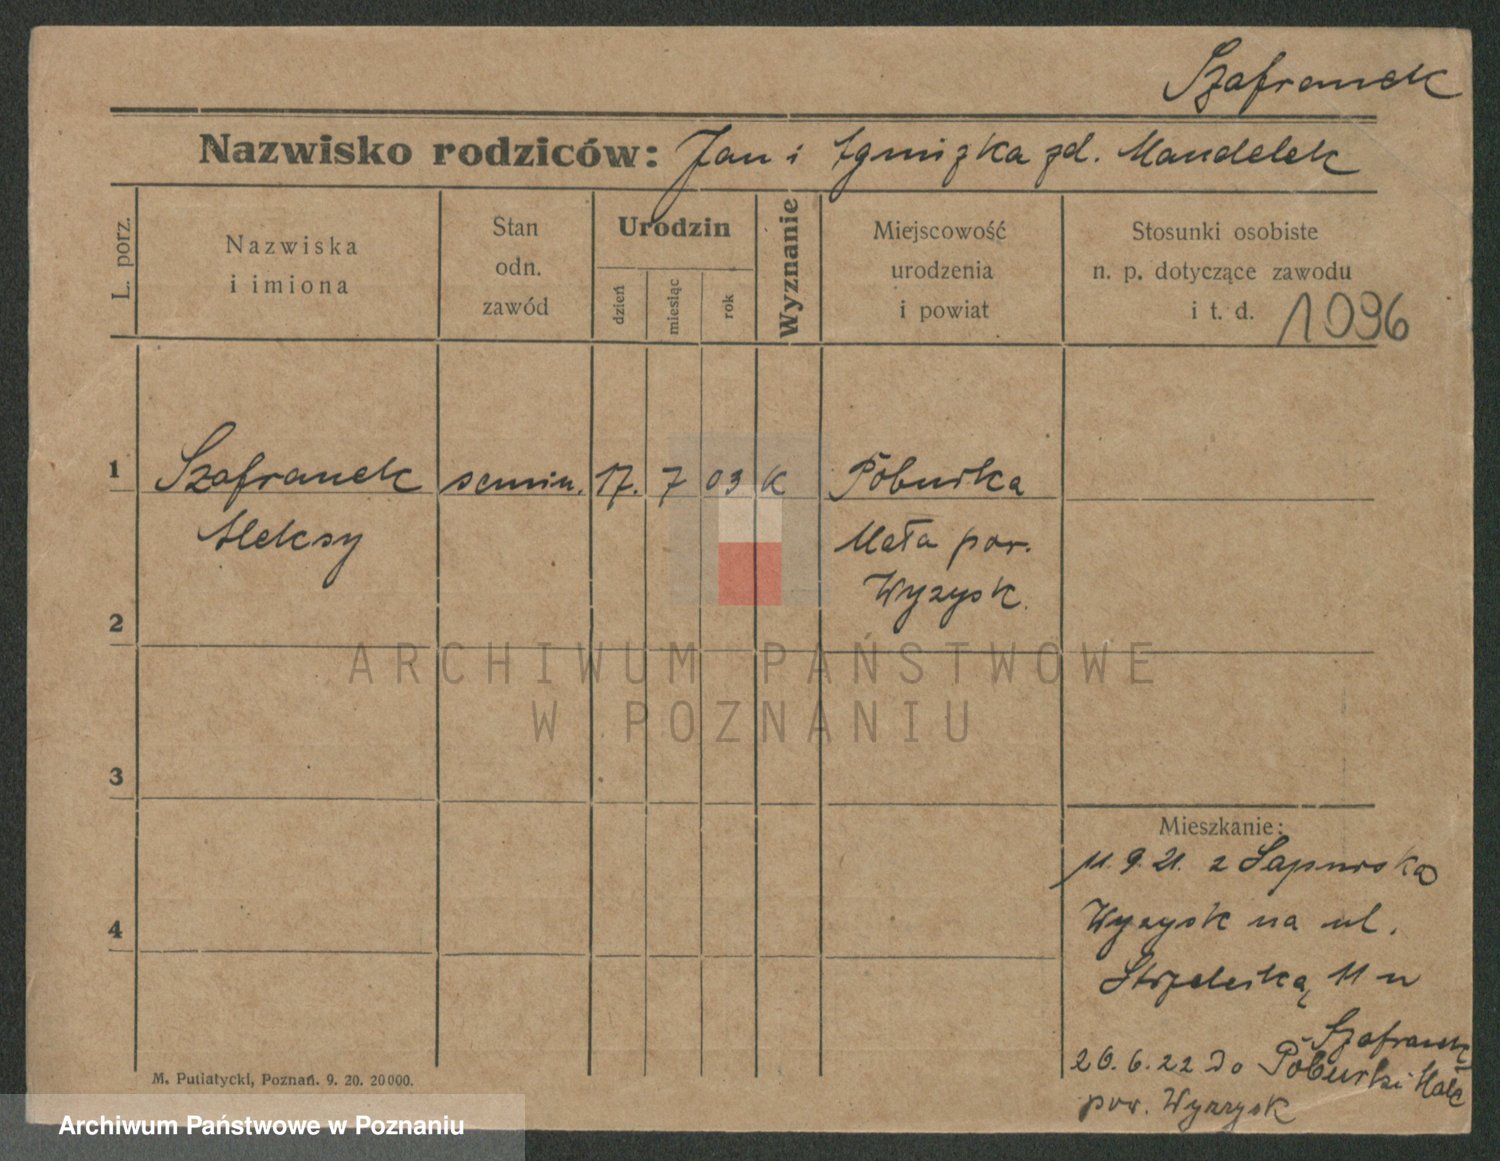 Szafranek
Nazwisko rodziców: Jan i Agniszka zd. Mandelek
L. porz.
Nazwiska
i imiona
Stan
odn.
zawód
Urodzin
dzień
miesiąc
rok
Wyznanie
Miejscowość
urodzenia
i powiat
Stosunki osobiste
n. p. dotyczące zawodu
i t. d. 1096
1 Szafranek semin. 17. 7 03 K Poburka
Aleksy Mała pow.
Wyzysk.
2
ARCHIWUM PAŃSTWOWE
W POZNANIU
3
Mieszkanie:
11.9.21. z
4 Wyzysk na ul.
Strzelecką 11 u
Szafranek
26.6.22 do Poburki Małe
pow. Wyrzysk
M. Putiatycki, Poznań. 9. 20. 20000.
Archiwum Państwowe w Poznaniu